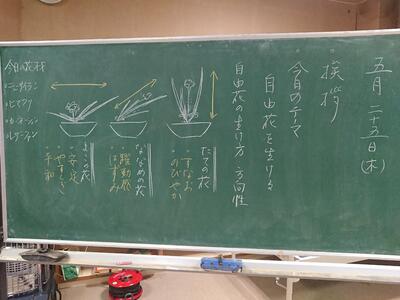 五月二十五日(木)
挨拶
今日のテーマ
自由花を生ける
自由花の生け方 方向性
たての花
・すなお
・のびやか
ななめの花
・躍動感
・はずみ
よこの花
・安定
・やすらぎ
・平和
今日の花材
・ニューサイラン
・ヒマワリ
・カーネーション
・レザーファン